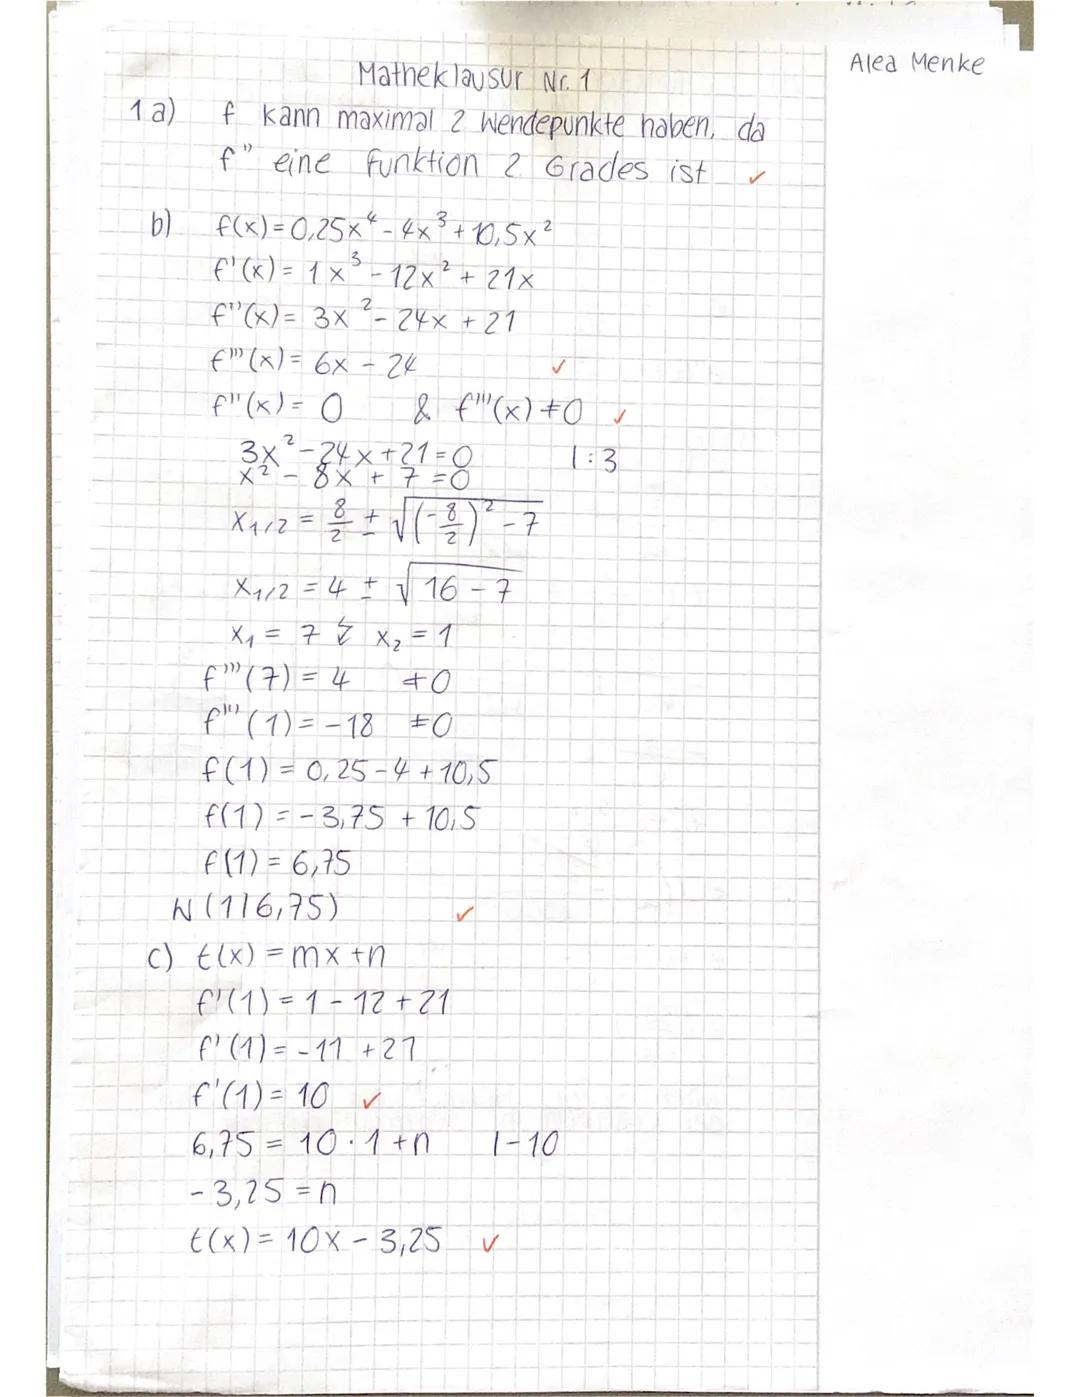 Alea Menke
Matheklausur Nr. 1
1 a) f kann maximal 2 Wendepunkte haben, da
f'' eine Funktion 2. Grades ist ✓
b) f(x) = 0,25x⁴ - 4x³ + 10,5x²
f'(x) = 1x³ - 12x² + 21x
f''(x) = 3x² - 24x + 21
f'''(x) = 6x - 24 ✓
f''(x) = 0 & f'''(x) ≠ 0 ✓
3x² - 24x + 21 = 0 |:3
x² - 8x + 7 = 0
x₁/₂ = 8/2 ± √((-8/2)² - 7)
x₁/₂ = 4 ± √(16 - 7)
x₁ = 7 ↯ x₂ = 1
f'''(7) = 4 ≠0
f'''(1) = -18 ≠0
f(1) = 0,25 - 4 + 10,5
f(1) = -3,75 + 10,5
f(1) = 6,75
W (1|6,75) ✓
c) t(x) = mx + n
f'(1) = 1 - 12 + 21
f'(1) = -11 + 21
f'(1) = 10 ✓
6,75 = 10 · 1 + n |-10
-3,25 = n
t(x) = 10x - 3,25 ✓